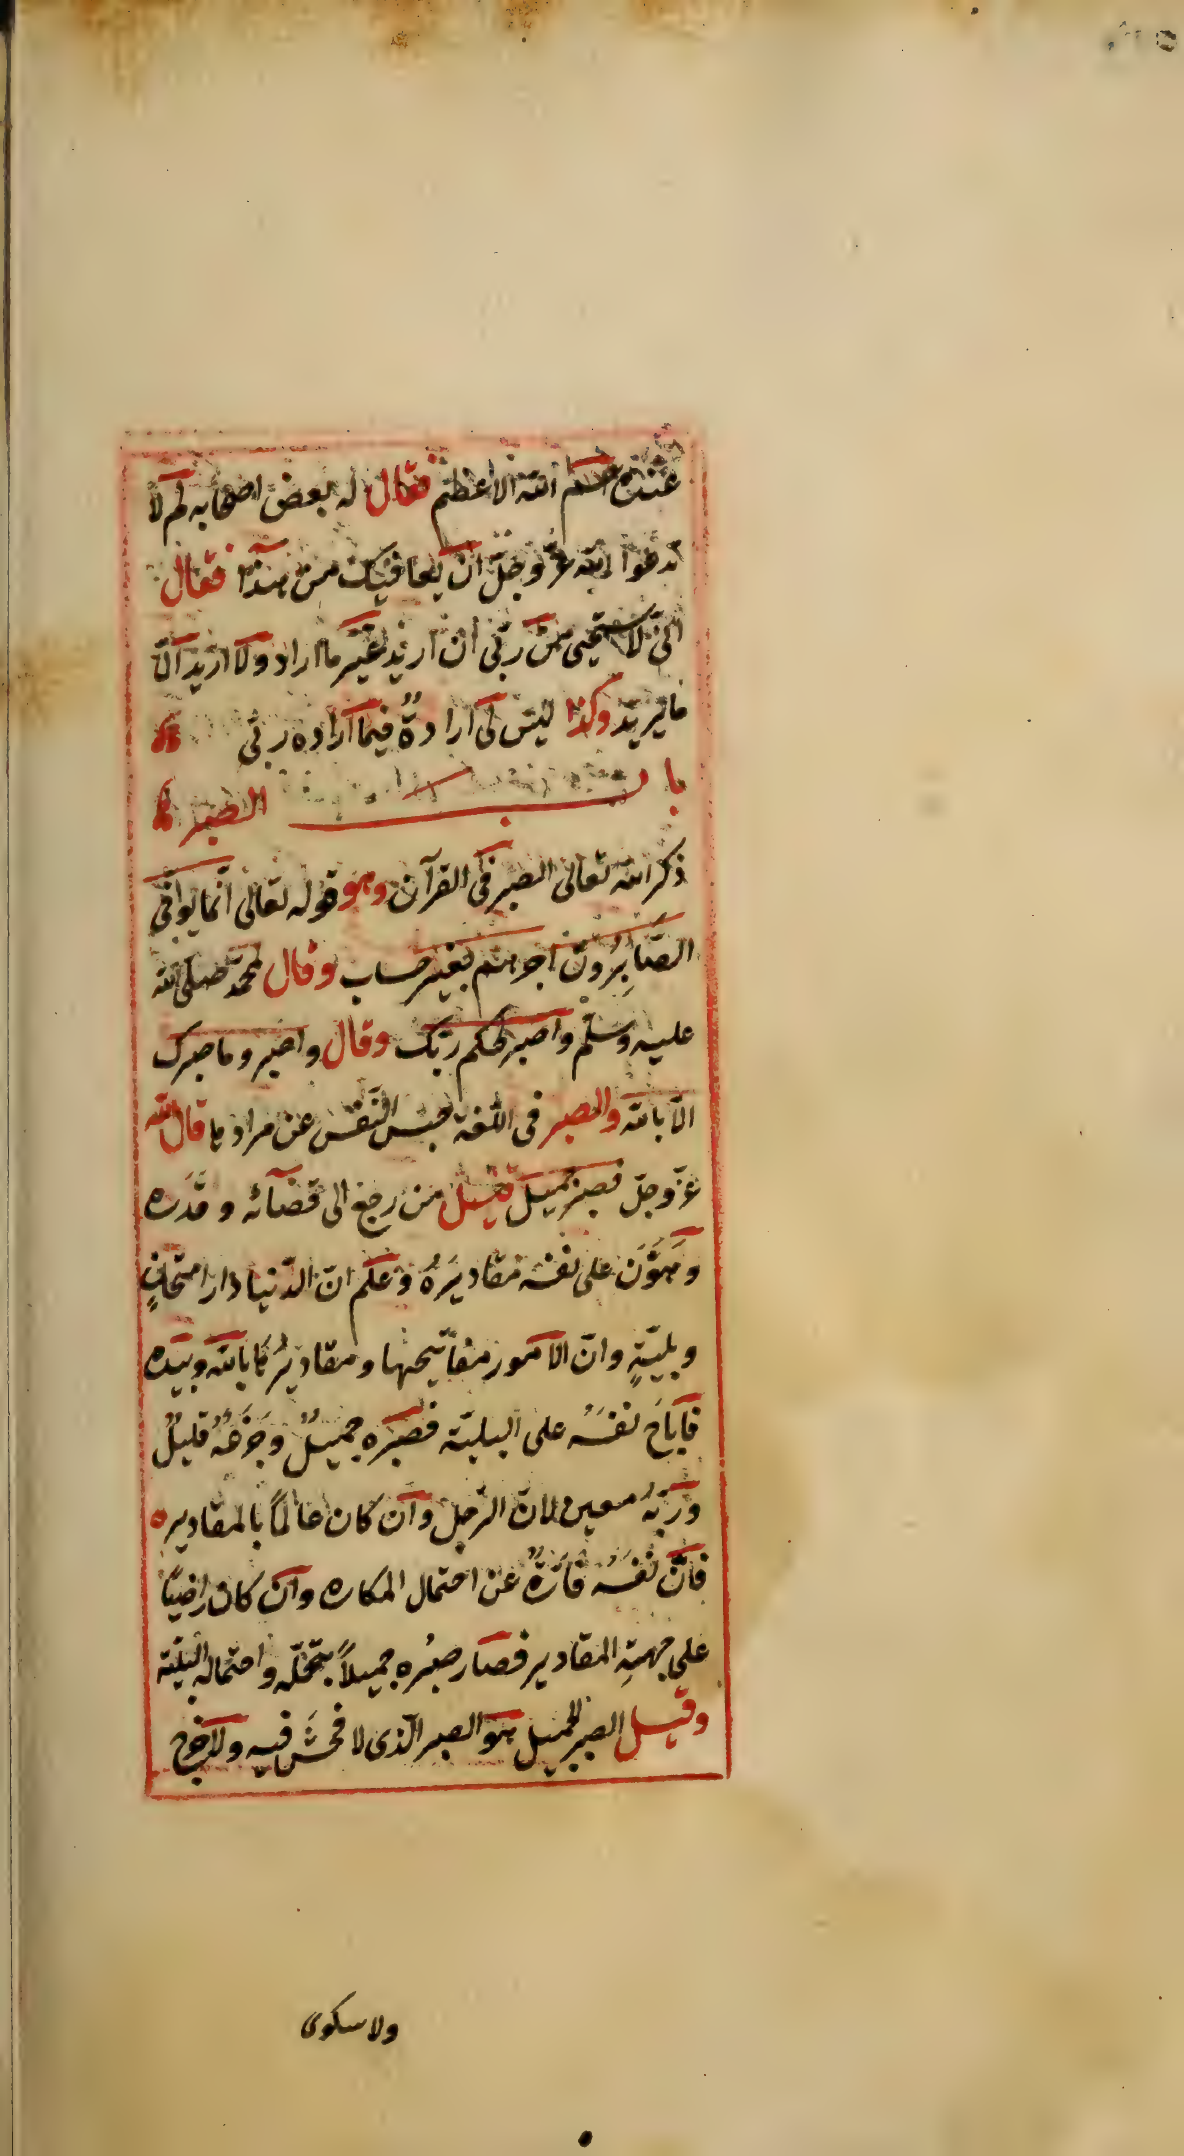 عنده اسم الله الاعظم فقال له بعض اصحابه لم لا
تدعوا الله عزّ وجلّ ان يعافيك من هذا فقال
انّى لاستحيى من ربّى ان اريد غير ما اراد ولا اريد الّا
ما يريد وكذا ليس لى ارادةٌ فيما اراده ربّى
باب الصبر
ذكر الله تعالى الصبر فى القرآن وهو قوله تعالى انّما يوافّى
الصّابِرُونَ اجرهم بغير حساب وقال لمحمّد صلى الله
عليه وسلّم واصبر لحكم ربّك وقال واصبر وما صبرك
الّا بالله والصبر فى اللّغة حبس النّفس عن مرادها قال الله
عزّ وجلّ فصبر جميل قيل من رجع الى قضآئه وقَدَره
وهَوَّنَ على نفسه مقاديرَهُ وعلم انّ الدّنيا دار امتحانٍ
وبليّةٍ وانّ الامور مفاتيحها ومقاديرُها بالله وبيده
فاباحَ نفسَه على البليّة فصبره جميلٌ وجَزَعُه قليلٌ
وربّهُ معين لانّ الرّجل وان كان عالماً بالمقادير
فانّ نفسَه فارّةٌ عن احتمال المكاره وان كان راضيًا
على جهةِ المقادير فصار صبرُه جميلاً بتحمّله واحتماله البليّة
وقيل الصبر الجميل هو الصبر الّذى لا فحش فيه ولا جزع
ولا سكوى